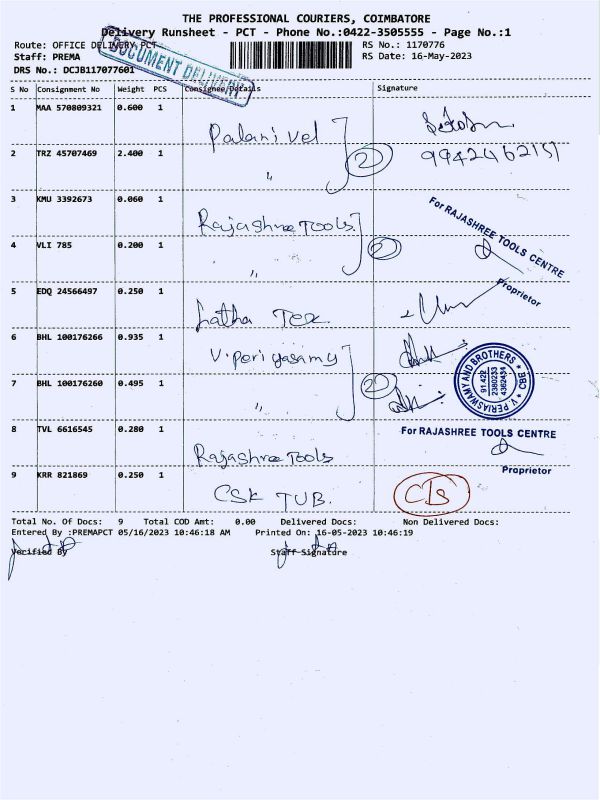 THE PROFESSIONAL COURIERS, COIMBATORE
Delivery Runsheet - PCT - Phone No.:0422-3505555 - Page No.:1
Route: OFFICE DELIVERY PCT
RS No.: 1170776
Staff: PREMA
RS Date: 16-May-2023
DRS No.: DCJB117077601
DOCUMENT DELIVERY
S No Consignment No Weight PCS Consignee Details Signature
1 MAA 570809321 0.600 1 Palanivel
2 TRZ 45707469 2.400 1 " 2 9942462151
3 KMU 3392673 0.060 1 Rajashree Tools
For RAJASHREE TOOLS CENTRE
4 VLI 785 0.200 1 " 2
Proprietor
5 EDQ 24566497 0.250 1 Latha Tex
6 BHL 100176266 0.935 1 V. Periyasamy
7 BHL 100176260 0.495 1 " 2
V. PERIASWAMY AND BROTHERS * CBE *
91.422
2380233
4362434
8 TVL 6616545 0.280 1 Rajashree Tools
For RAJASHREE TOOLS CENTRE
Proprietor
9 KRR 821869 0.250 1 CSK TUB.
Total No. Of Docs: 9 Total COD Amt: 0.00 Delivered Docs: Non Delivered Docs:
Entered By :PREMAPCT 05/16/2023 10:46:18 AM Printed On: 16-05-2023 10:46:19
Verified By Staff Signature